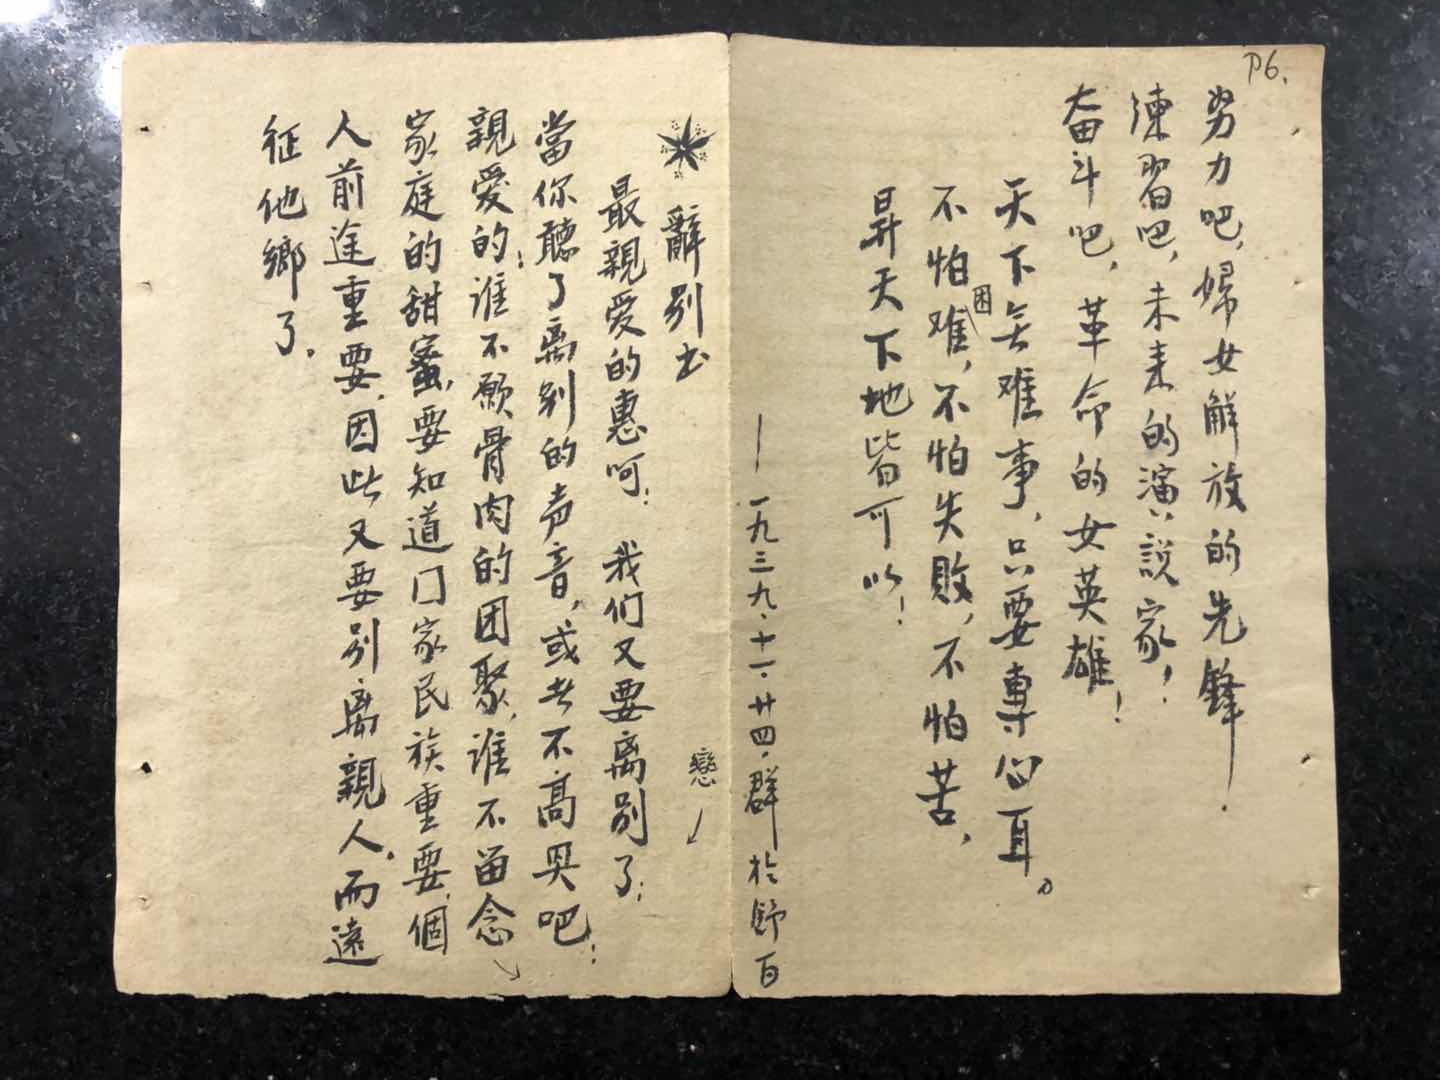 P6.
努力吧,婦女解放的先鋒.
練習吧,未来的演說家!
奋斗吧,革命的女英雄!
天下无难事,只要專心耳。
不怕困难,不怕失敗,不怕苦,
昇天下地皆可以!
—一九三九.十一.廿四.群於野百
辭别书
最親爱的惠呵:我们又要离别了;
當你聽了离别的声音,或者不高兴吧;
親爱的:谁不願骨肉的团聚,谁不留念
戀
家庭的甜蜜,要知道门家民族重要,個
人前途重要,因此又要别离親人,而遠
征他鄉了.